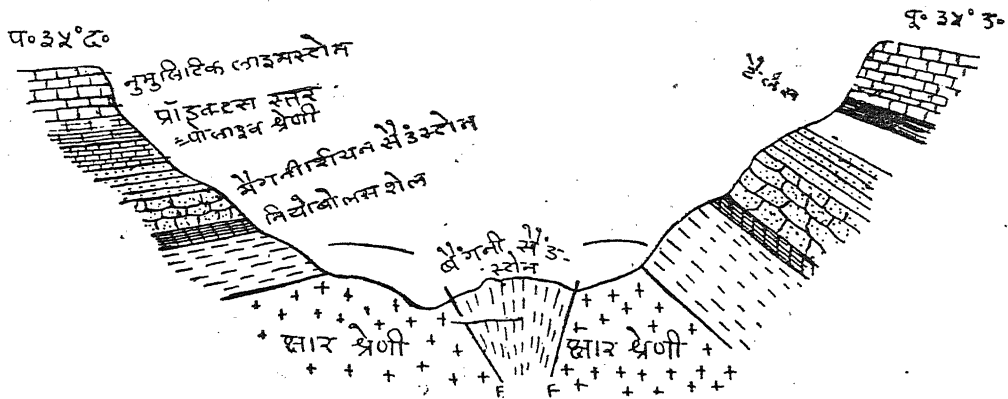 प० ३५° द०
पू० ३५° उ०
नुमुलिटिक लाइमस्टोन
प्रॉडक्टस स्तर
श्रेणी
मैगनीशियन सैंडस्टोन
नियोबोलस शेल
बैंगनी सैंड-
स्टोन
क्षार श्रेणी
क्षार श्रेणी
F
F